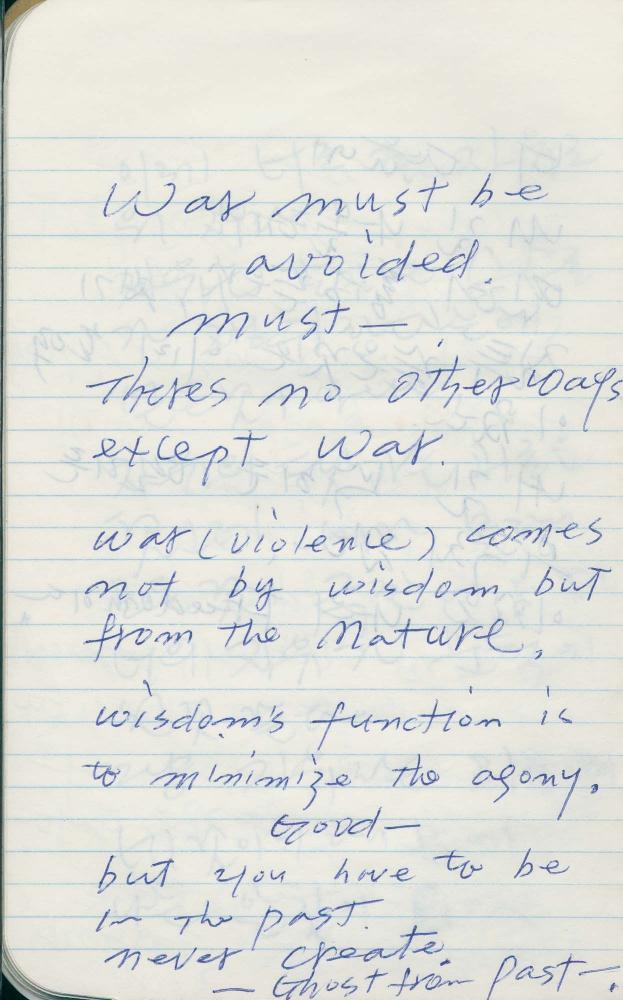 War must be
avoided.
must —.
Theres no other ways
except War.
war (violence) comes
not by wisdom but
from the Nature.
wisdom's function is
to minimize the agony.
Good —
but you have to be
in the past.
never create.
— Ghost from Past —.